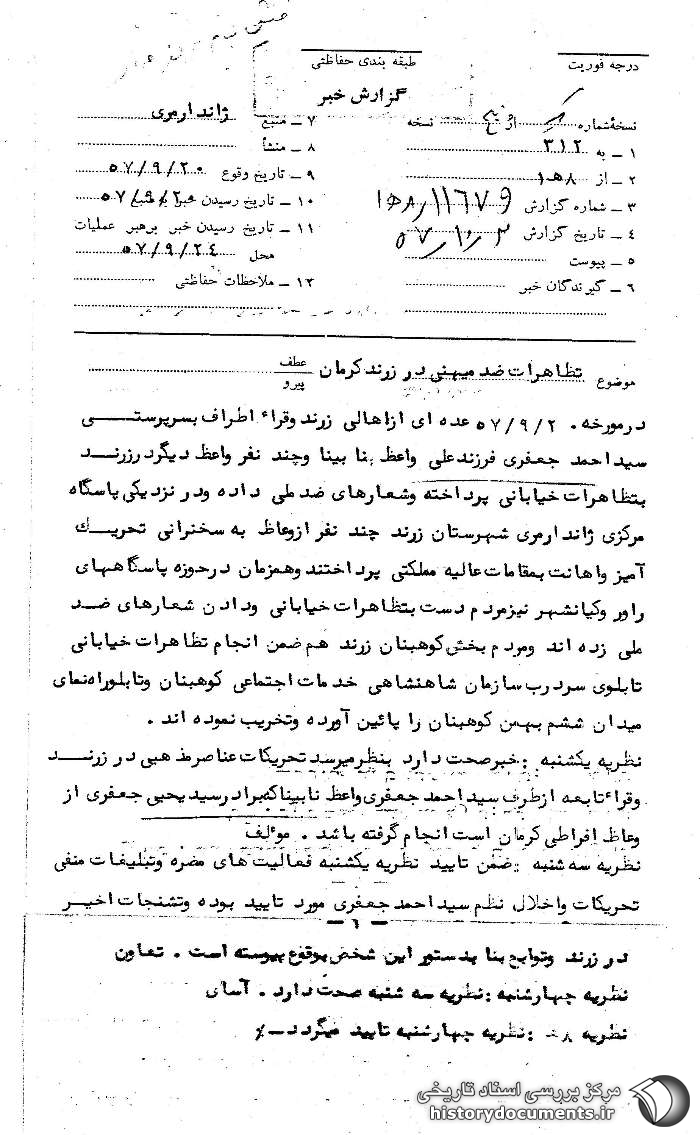 درجه فوریت
طبقه بندی حفاظتی
گزارش خبر
نسخهٔ شماره از نسخه
۱ ـ به ۳۱۲
۲ ـ از ۸ هـ ۱
۳ ـ شماره گزارش ۱۱۶۷۹ / ۸ هـ ۱
۴ ـ تاریخ گزارش ۵۷/۱۰/۲
۵ ـ پیوست
۶ ـ گیرندگان خبر
۷ ـ منبع ژاندارمری
۸ ـ منشأ
۹ ـ تاریخ وقوع ۵۷/۹/۲۰
۱۰ ـ تاریخ رسیدن خبر به منبع ۵۷/۹/۲۰
۱۱ ـ تاریخ رسیدن خبر برهبر عملیات
محل ۵۷/۹/۲٤
۱۲ ـ ملاحظات حفاظتی
موضوع تظاهرات ضد میهنی در زرند کرمان عطف
پیرو
در مورخه ۵۷/۹/۲۰ عده ای از اهالی زرند وقراء اطراف بسرپرستی
سید احمد جعفری فرزند علی واعظ نا بینا وچند نفر واعظ دیگر در زرند
بتظاهرات خیابانی پرداخته وشعارهای ضد ملی داده ودر نزدیکی پاسگاه
مرکزی ژاندارمری شهرستان زرند چند نفر از وعاظ به سخنرانی تحریک
آمیز واهانت بمقامات عالیه مملکتی پرداختند وهمزمان در حوزه پاسگاههای
راور وکیانشهر نیز مردم دست بتظاهرات خیابانی ودادن شعارهای ضد
ملی زده اند ومردم بخش کوهبنان زرند هم ضمن انجام تظاهرات خیابانی
تابلوی سردرب سازمان شاهنشاهی خدمات اجتماعی کوهبنان وتابلو راهنمای
میدان ششم بهمن کوهبنان را پائین آورده وتخریب نموده اند .
نظریه یکشنبه : خبر صحت دارد بنظر میرسد تحریکات عناصر مذهبی در زرند
وقراء تابعه از طرف سید احمد جعفری واعظ نابینا که برادر سید یحیی جعفری از
وعاظ افراطی کرمان است انجام گرفته باشد . موءلف
نظریه سه شنبه : ضمن تایید نظریه یکشنبه فعالیت های مضره وتبلیغات منفی
تحریکات واخلال نظم سید احمد جعفری مورد تایید بوده وتشنجات اخیر
ـ ٦ ـ
در زرند وتوابع بنا بدستور این شخص بوقوع پیوسته است . تعاون
نظریه چهارشنبه : نظریه سه شنبه صحت دارد . آسای
نظریه ۸ هـ : نظریه چهارشنبه تایید میگردد ـ ٪
مرکز بررسی اسناد تاریخی
historydocuments.ir